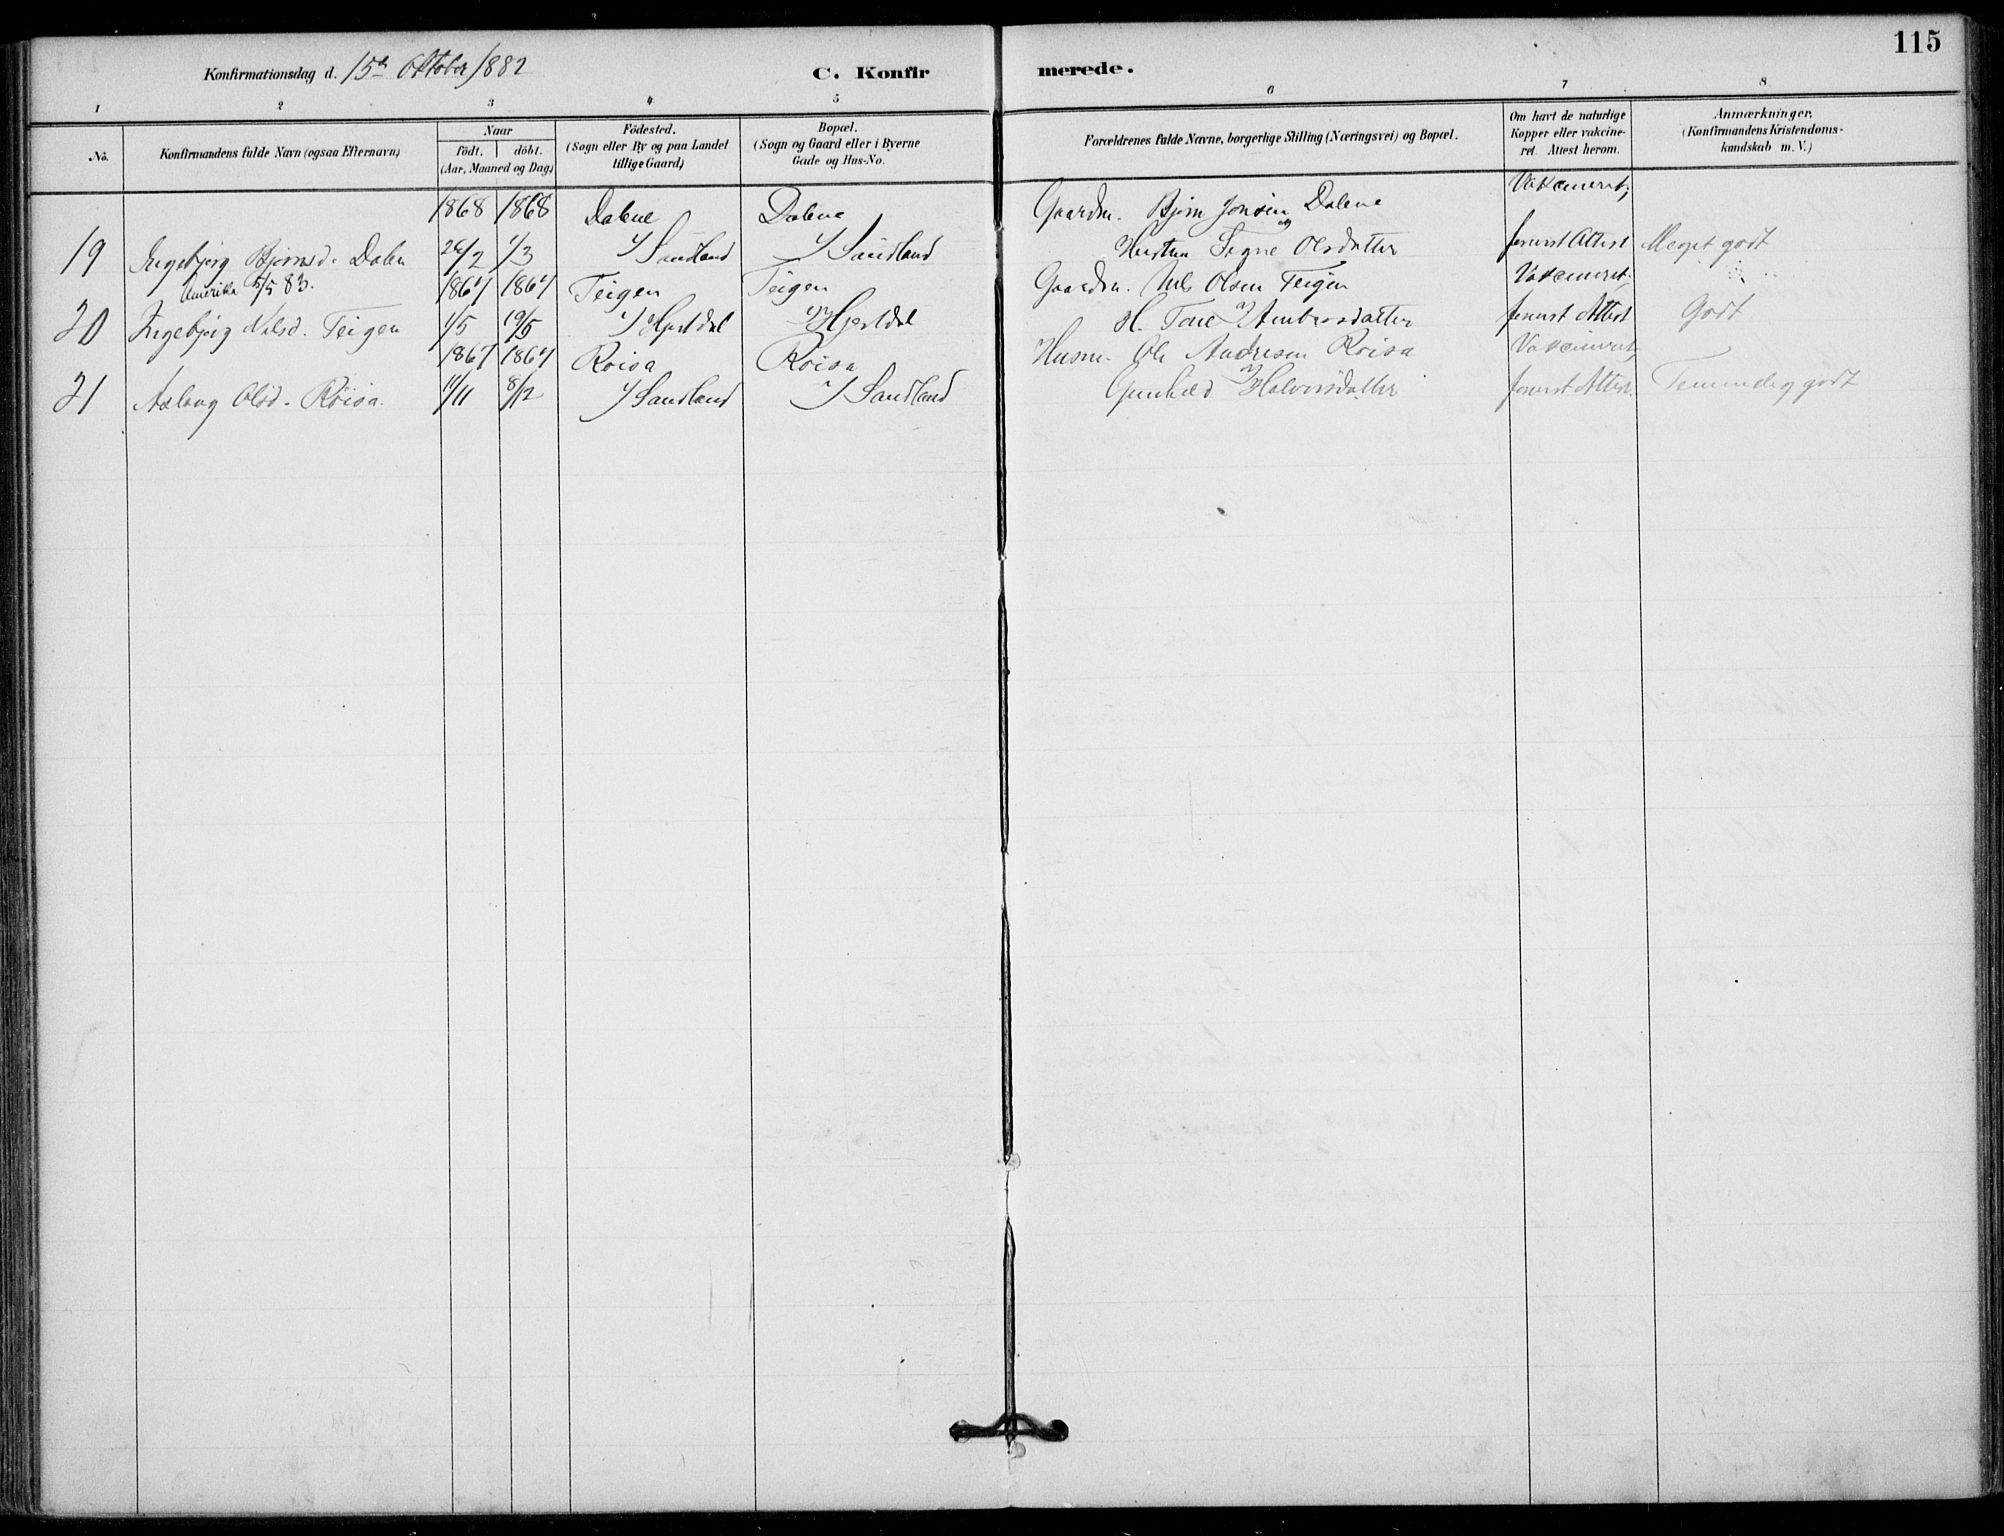 115
Konfirmationsdag d. 15de Oktober 1882
C. Konfir merede.
1 2 3 4 5 6 7 8
No.
Konfirmandens fulde Navn (ogsaa Efternavn)
Naar
födt. döbt.
(Aar, Maaned og Dag)
Födested.
(Sogn eller By og paa Landet
tillige Gaard)
Bopæl.
(Sogn og Gaard eller i Byerne
Gade og Hus-No.
Forældrenes fulde Navne, borgerlige Stilling (Næringsvei) og Bopæl.
Om havt de naturlige
Kopper eller vakcine-
ret. Attest herom.
Anmærkninger.
(Konfirmandens Kristendoms-
kundskab m. V.)
1868 1868 Dalene Dalene Gaardm. Bjørn Jonsen Dalene Vakcineret,
19 Ingebjørg Bjørnsd. Dalen 26/2 1/3 i/ Sandland i/ Sandland og Hustru Signe Olsdatter forevist Attest Meget godt
Amerika 5/5 83.
1867 1867 Teigen Teigen Gaardm. Nils Olsen Teigen Vakcineret,
20 Ingebjørg Nilsd. Teigen 1/5 19/5 i/ Hjertdal i/ Hjertdal og H. Tone Ambørsdatter forevist Attest Godt
1867 1867 Röisa Röisa Husm. Ole Andresen Röisa Vakcineret,
21 Aslaug Olsd. Röisa 11/11 8/12 i/ Sandland i/ Sandland og Gunhild Halvorsdatter forevist Attest. Temmelig godt